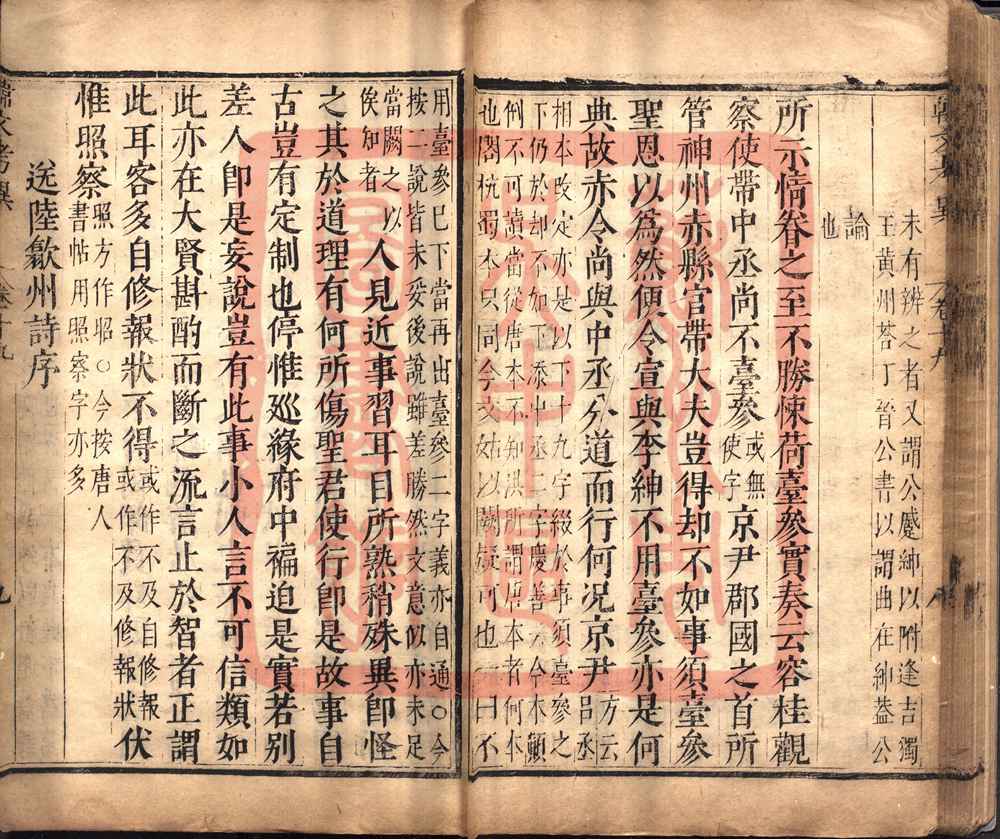 未有辨之者又謂公蹙紳以附逢吉獨
王黄州荅丁晉公書以謂曲在紳葢公
論
也
所示情眷之至不勝悚荷臺參實奏云容桂觀
察使帶中丞尚不臺參或無使字京尹郡國之首所
管神州赤縣官帶大夫豈得却不如事須臺參
聖恩以爲然便令宣與李紳不用臺參亦是何
典故赤令尚與中丞分道而行何况京尹方云吕丞
相本改定亦是以下十九字綴於事須臺參之
下仍於却不如下添中丞二字慶善云今本顛
倒不可讀當從唐本不知洪所謂唐本者何本
也閣杭蜀本只同今文姑以闕疑可也一曰不
用臺參巳下當再出臺參二字義亦自通○今
按二說皆未妥後說雖差勝然文意似亦未足
當闕之以俟知者人見近事習耳目所熟稍殊異即怪
之其於道理有何所傷聖君使行即是故事自
古豈有定制也停惟廵緣府中褊迫是實若别
差人即是妄說豈有此事小人言不可信類如
此亦在大賢斟酌而斷之流言止於智者正謂
此耳客多自修報狀不得或作不及自修報或作不及修報狀伏
惟照察照方作昭○今按唐人書帖用照察字亦多
送陸歙州詩序